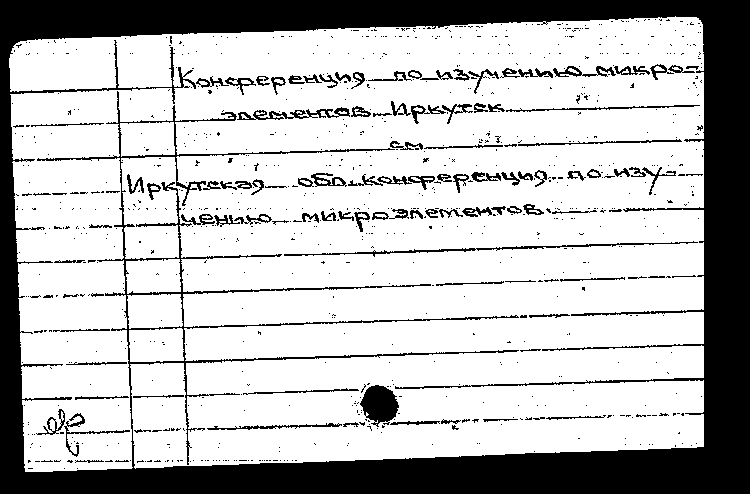 Конференция по изучению микро-
элементов Иркутск
см
Иркутская обл. конференция по изу-
чению микроэлементов.